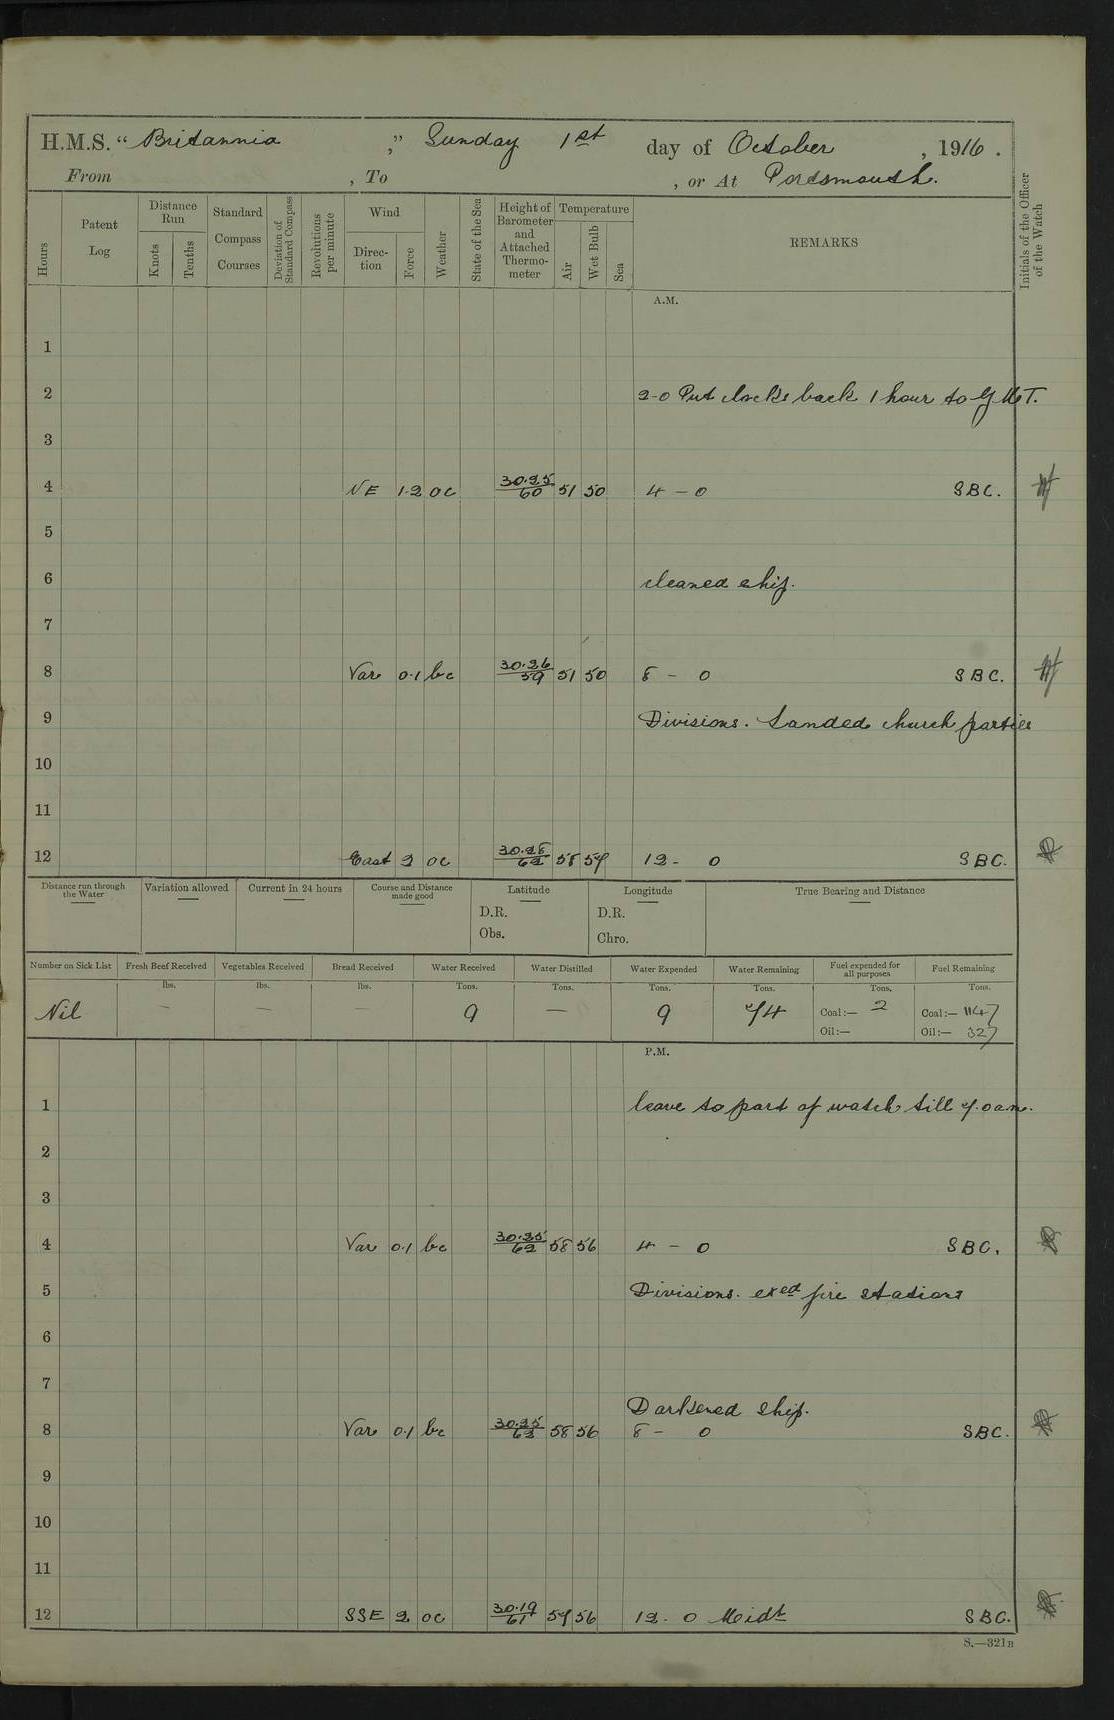 H.M.S. “ Britannia ,” Sunday 1st day of October , 1916 .
From , To , or At Portsmouth.
Hours
Patent Log
Distance Run
Knots
Tenths
Standard Compass Courses
Deviation of Standard Compass
Revolutions per minute
Wind
Direc- tion
Force
Weather
State of the Sea
Height of Barometer and Attached Thermo- meter
Temperature
Air
Wet Bulb
Sea
REMARKS
Initials of the Officer of the Watch
A.M.
1
2 2-0 Put clocks back 1 hour to G.M.T.
3
4 NE 1.2 oc 30.25/60 51 50 4 - 0 SBC.
5
6 cleaned ship.
7
8 Var 0.1 bc 30.26/59 51 50 8 - 0 SBC.
9 Divisions. Landed church parties
10
11
12 East 2 oc 30.28/62 58 57 12 - 0 SBC.
Distance run through the Water
Variation allowed
Current in 24 hours
Course and Distance made good
Latitude
D.R.
Obs.
Longitude
D.R.
Chro.
True Bearing and Distance
Number on Sick List Fresh Beef Received Vegetables Received Bread Received Water Received Water Distilled Water Expended Water Remaining Fuel expended for all purposes Fuel Remaining
lbs. lbs. lbs. Tons. Tons. Tons. Tons. Tons. Tons.
Nil — — — 9 — 9 74 Coal:— 2 Coal:— 1147
Oil:— Oil:— 327
P.M.
1 leave to part of watch till 7.0 am.
2
3
4 Var 0.1 bc 30.25/62 58 56 4 - 0 SBC.
5 Divisions. exed fire stations
6
7
Darkened ship.
8 Var 0.1 bc 30.25/62 58 56 8 - 0 SBC.
9
10
11
12 SSE 2 oc 30.19/61 57 56 12 - 0 Midt SBC.
S.—321B